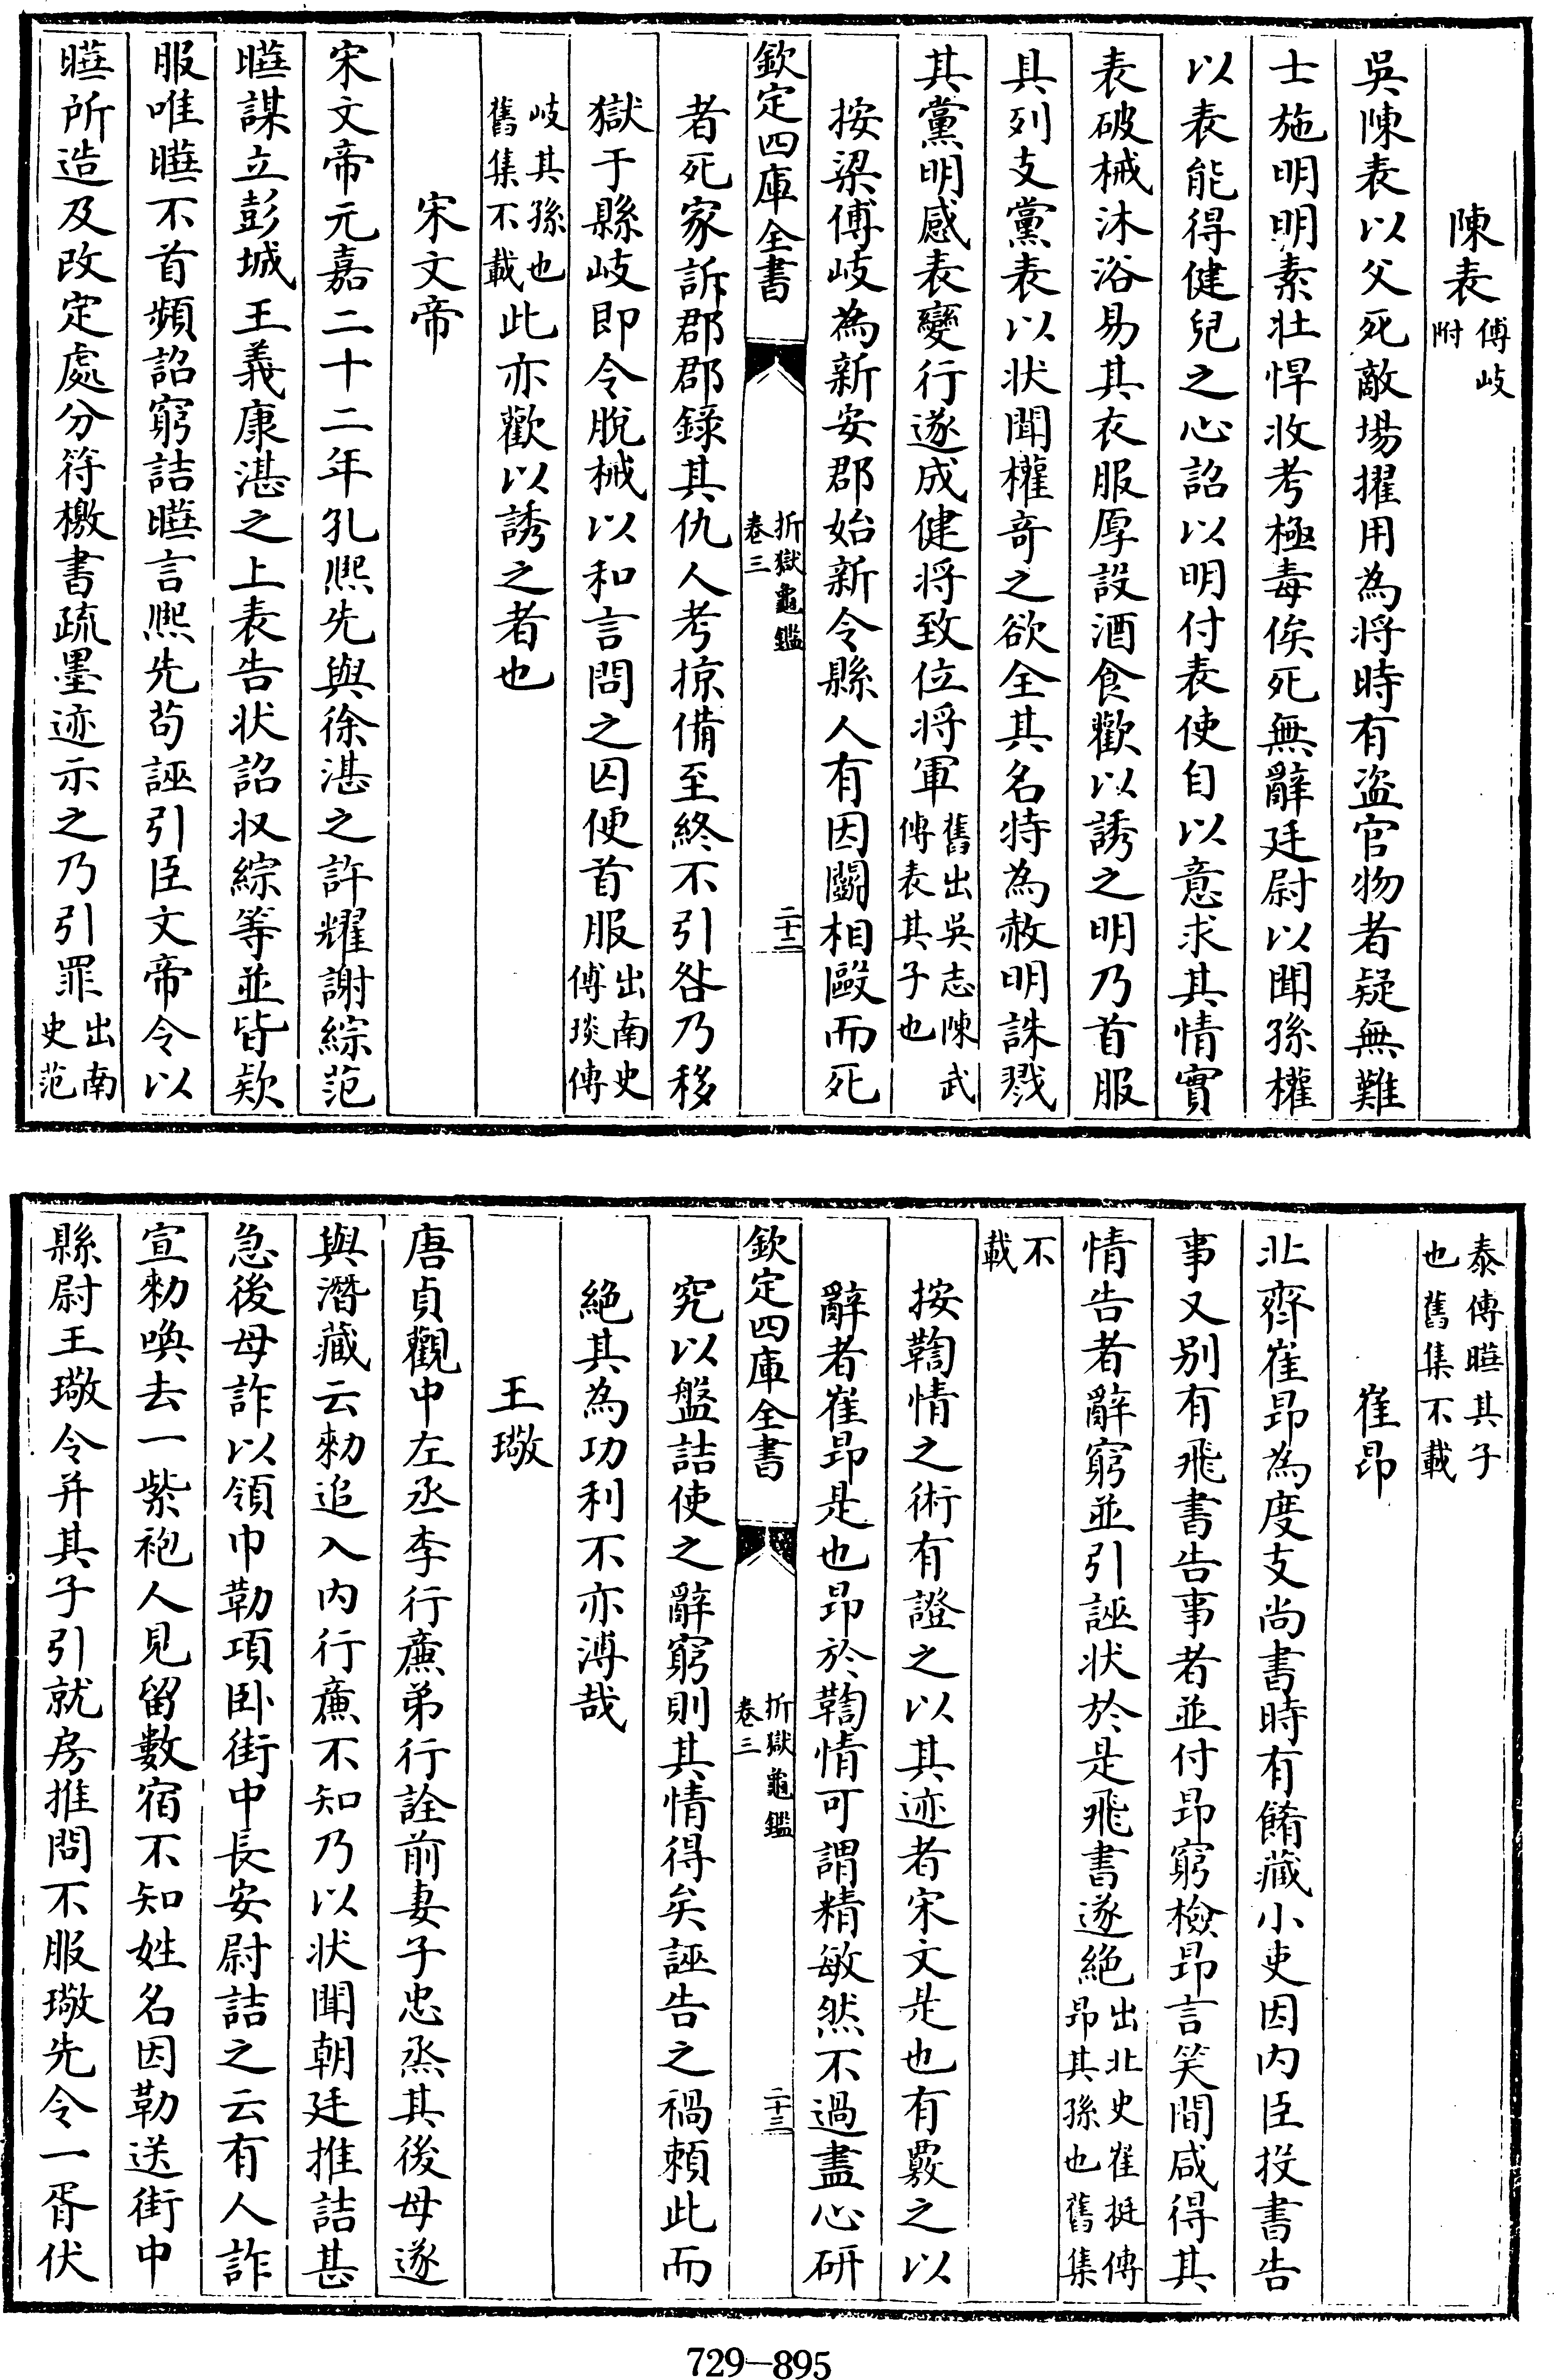 陳表傅岐附
吳陳表以父死敵場擢用為将時有盗官物者疑無難
士施明明素壮悍收考極毒俟死無辭廷尉以聞孫權
以表能得健兒之心詔以明付表使自以意求其情實
表破械沐浴易其衣服厚設酒食歡以誘之明乃首服
具列支黨表以状聞權奇之欲全其名特為赦明誅戮
其黨明感表變行遂成健将致位将軍舊出吳志陳武傳表其子也
按梁傅岐為新安郡始新令縣人有因鬭相毆而死
欽定四庫全書 折獄龜鑑卷三 二十二
者死家訴郡郡錄其仇人考掠備至終不引咎乃移
獄于縣岐即令脫械以和言問之囚便首服出南史傅琰傳
岐其孫也舊集不載此亦歡以誘之者也
宋文帝
宋文帝元嘉二十二年孔熙先與徐湛之許耀謝綜范
曄謀立彭城王義康湛之上表告状詔収綜等並皆欵
服唯曄不首頻詔窮詰曄言熙先苟誣引臣文帝令以
曄所造及改定處分符檄書疏墨迹示之乃引罪出南史范
泰傳曄其子也舊集不載
崔昂
北齊崔昂為度支尚書時有餚藏小吏因内臣投書告
事又别有飛書告事者並付昂窮檢昂言笑間咸得其
情告者辭窮並引誣状於是飛書遂絕出北史崔挺傳昂其孫也舊集
不載
按鞫情之術有證之以其迹者宋文是也有覈之以
辭者崔昂是也昂於鞫情可謂精敏然不過盡心研
欽定四庫全書 折獄龜鑑卷三 二十三
究以盤詰使之辭窮則其情得矣誣告之禍頼此而
絕其為功利不亦溥哉
王璥
唐貞觀中左丞李行㢘弟行詮前妻子忠烝其後母遂
與潛藏云勑追入内行㢘不知乃以状聞朝廷推詰甚
急後母詐以領巾勒項卧街中長安尉詰之云有人詐
宣勑喚去一紫袍人見留數宿不知姓名因勒送街中
縣尉王璥令并其子引就房推問不服璥先令一胥伏
729—895